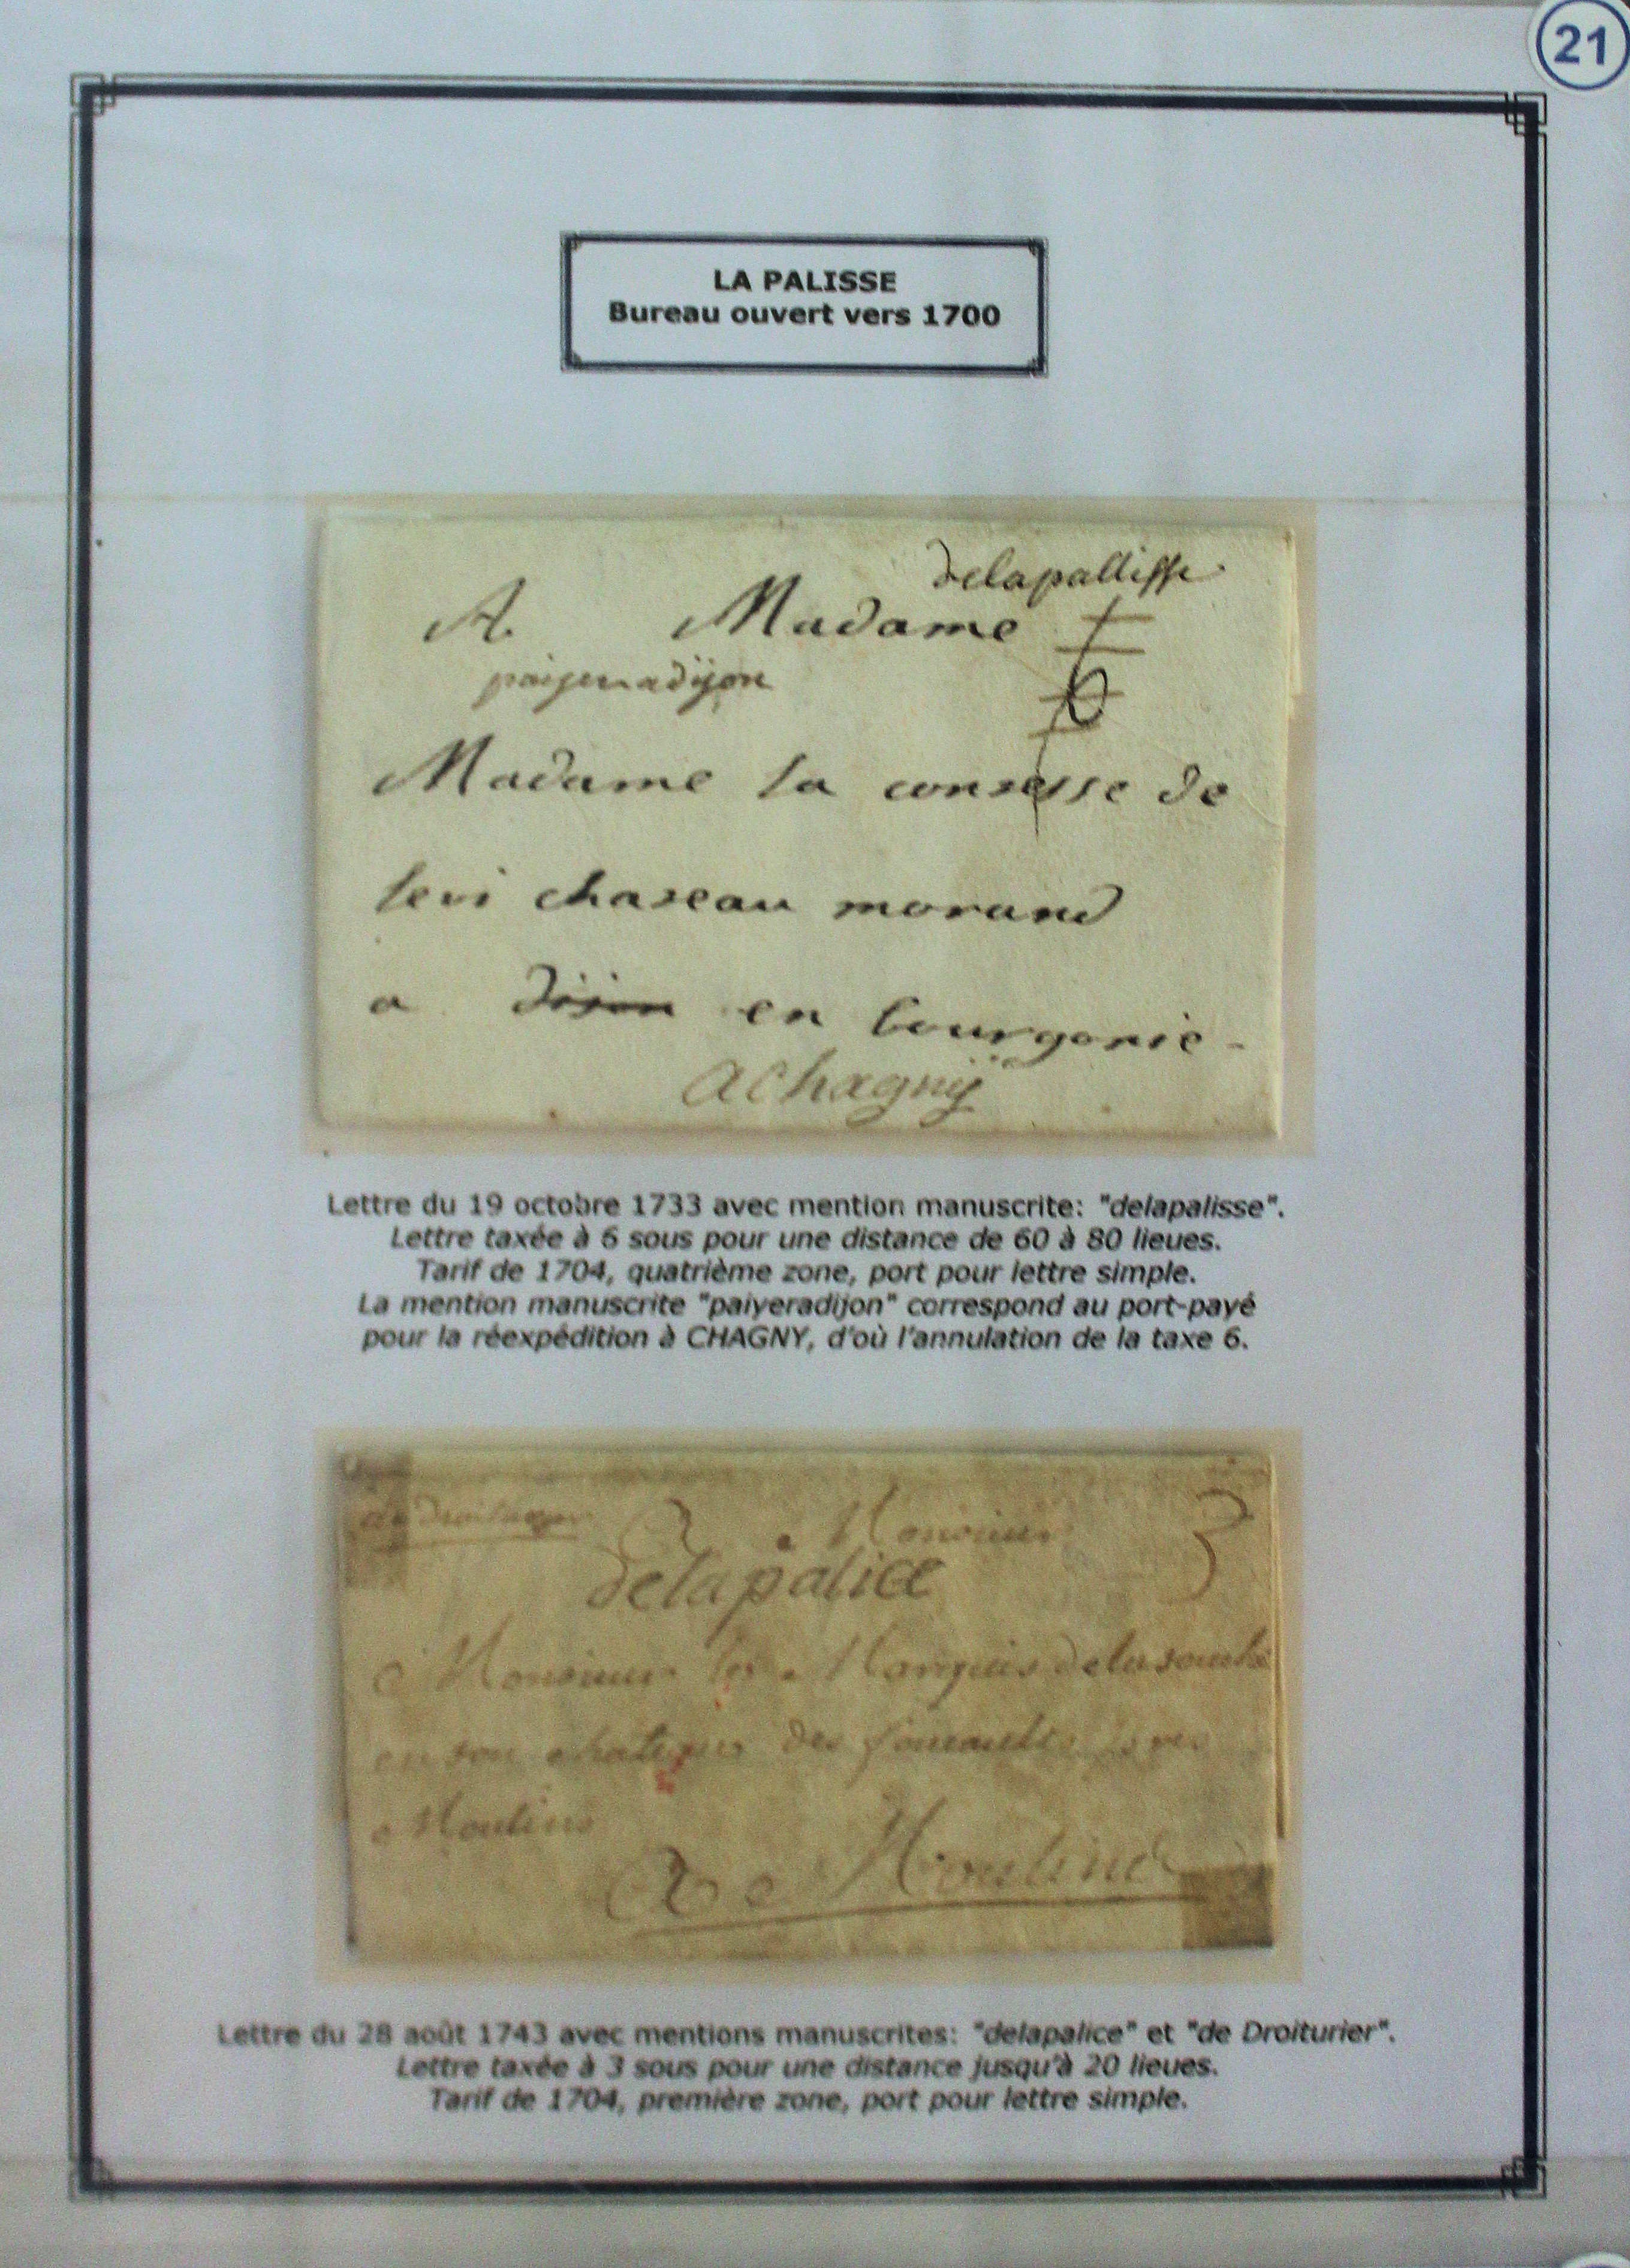 21
LA PALISSE
Bureau ouvert vers 1700
delapallisse
A. Madame
paiyeradijon
6
Madame la contesse de
levi chateau morand
a dijon en bourgonie
a Chagny
Lettre du 19 octobre 1733 avec mention manuscrite: "delapalisse".
Lettre taxée à 6 sous pour une distance de 60 à 80 lieues.
Tarif de 1704, quatrième zone, port pour lettre simple.
La mention manuscrite "paiyeradijon" correspond au port-payé
pour la réexpédition à CHAGNY, d'où l'annulation de la taxe 6.
de Droiturier
A Monsieur
3
delapalice
A Monsieur le Marquis
en son chateau des
Moulins
A Moulins
Lettre du 28 août 1743 avec mentions manuscrites: "delapalice" et "de Droiturier".
Lettre taxée à 3 sous pour une distance jusqu'à 20 lieues.
Tarif de 1704, première zone, port pour lettre simple.